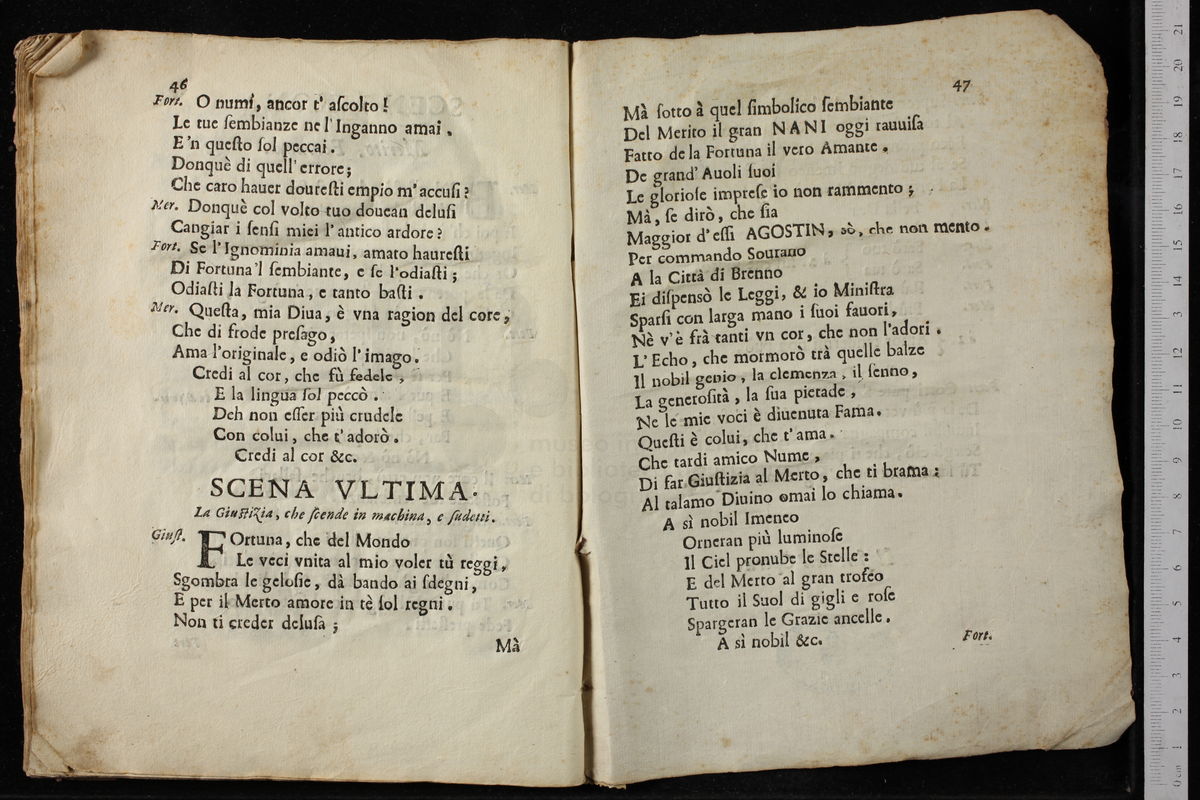 46
Fort. O numi, ancor t' aſcolto!
Le tue ſembianze ne l'Inganno amai.
E'n queſto ſol peccai.
Donquè di quell' errore;
Che caro hauer doureſti empio m'accuſi?
Mer. Donquè col volto tuo douean deluſi
Cangiar i ſenſi miei l'antico ardore?
Fort. Se l'Ignominia amaui, amato haureſti
Di Fortuna'l ſembiante, e ſe l'odiaſti;
Odiaſti la Fortuna, e tanto baſti.
Mer. Queſta, mia Diua, è vna ragion del core,
Che di frode preſago,
Ama l'originale, e odiò l'imago.
Credi al cor, che fù fedele,
E la lingua ſol peccò.
Deh non eſſer più crudele
Con colui, che t'adorò.
Credi al cor &c.
SCENA VLTIMA.
La Giuſtizia, che ſcende in machina, e ſudetti.
Giuſt. FOrtuna, che del Mondo
Le veci vnita al mio voler tù reggi,
Sgombra le geloſie, dà bando ai ſdegni,
E per il Merto amore in tè ſol regni.
Non ti creder deluſa;
Mà
47
Mà ſotto à quel ſimbolico ſembiante
Del Merito il gran NANI oggi rauuiſa
Fatto de la Fortuna il vero Amante.
De grand' Auoli ſuoi
Le glorioſe impreſe io non rammento;
Mà, ſe dirò, che ſia
Maggior d'eſſi AGOSTIN, sò, che non mento.
Per commando Sourano
A la Città di Brenno
Ei diſpensò le Leggi, & io Miniſtra
Sparſi con larga mano i ſuoi fauori,
Nè v'è frà tanti vn cor, che non l'adori.
L'Echo, che mormorò trà quelle balze
Il nobil genio, la clemenza, il ſenno,
La generoſità, la ſua pietade,
Ne le mie voci è diuenuta Fama.
Queſti è colui, che t'ama.
Che tardi amico Nume,
Di far Giuſtizia al Merto, che ti brama;
Al talamo Diuino omai lo chiama.
A sì nobil Imeneo
Orneran più luminoſe
Il Ciel pronube le Stelle:
E del Merto al gran trofeo
Tutto il Suol di gigli e roſe
Spargeran le Grazie ancelle.
A sì nobil &c.
Fort.